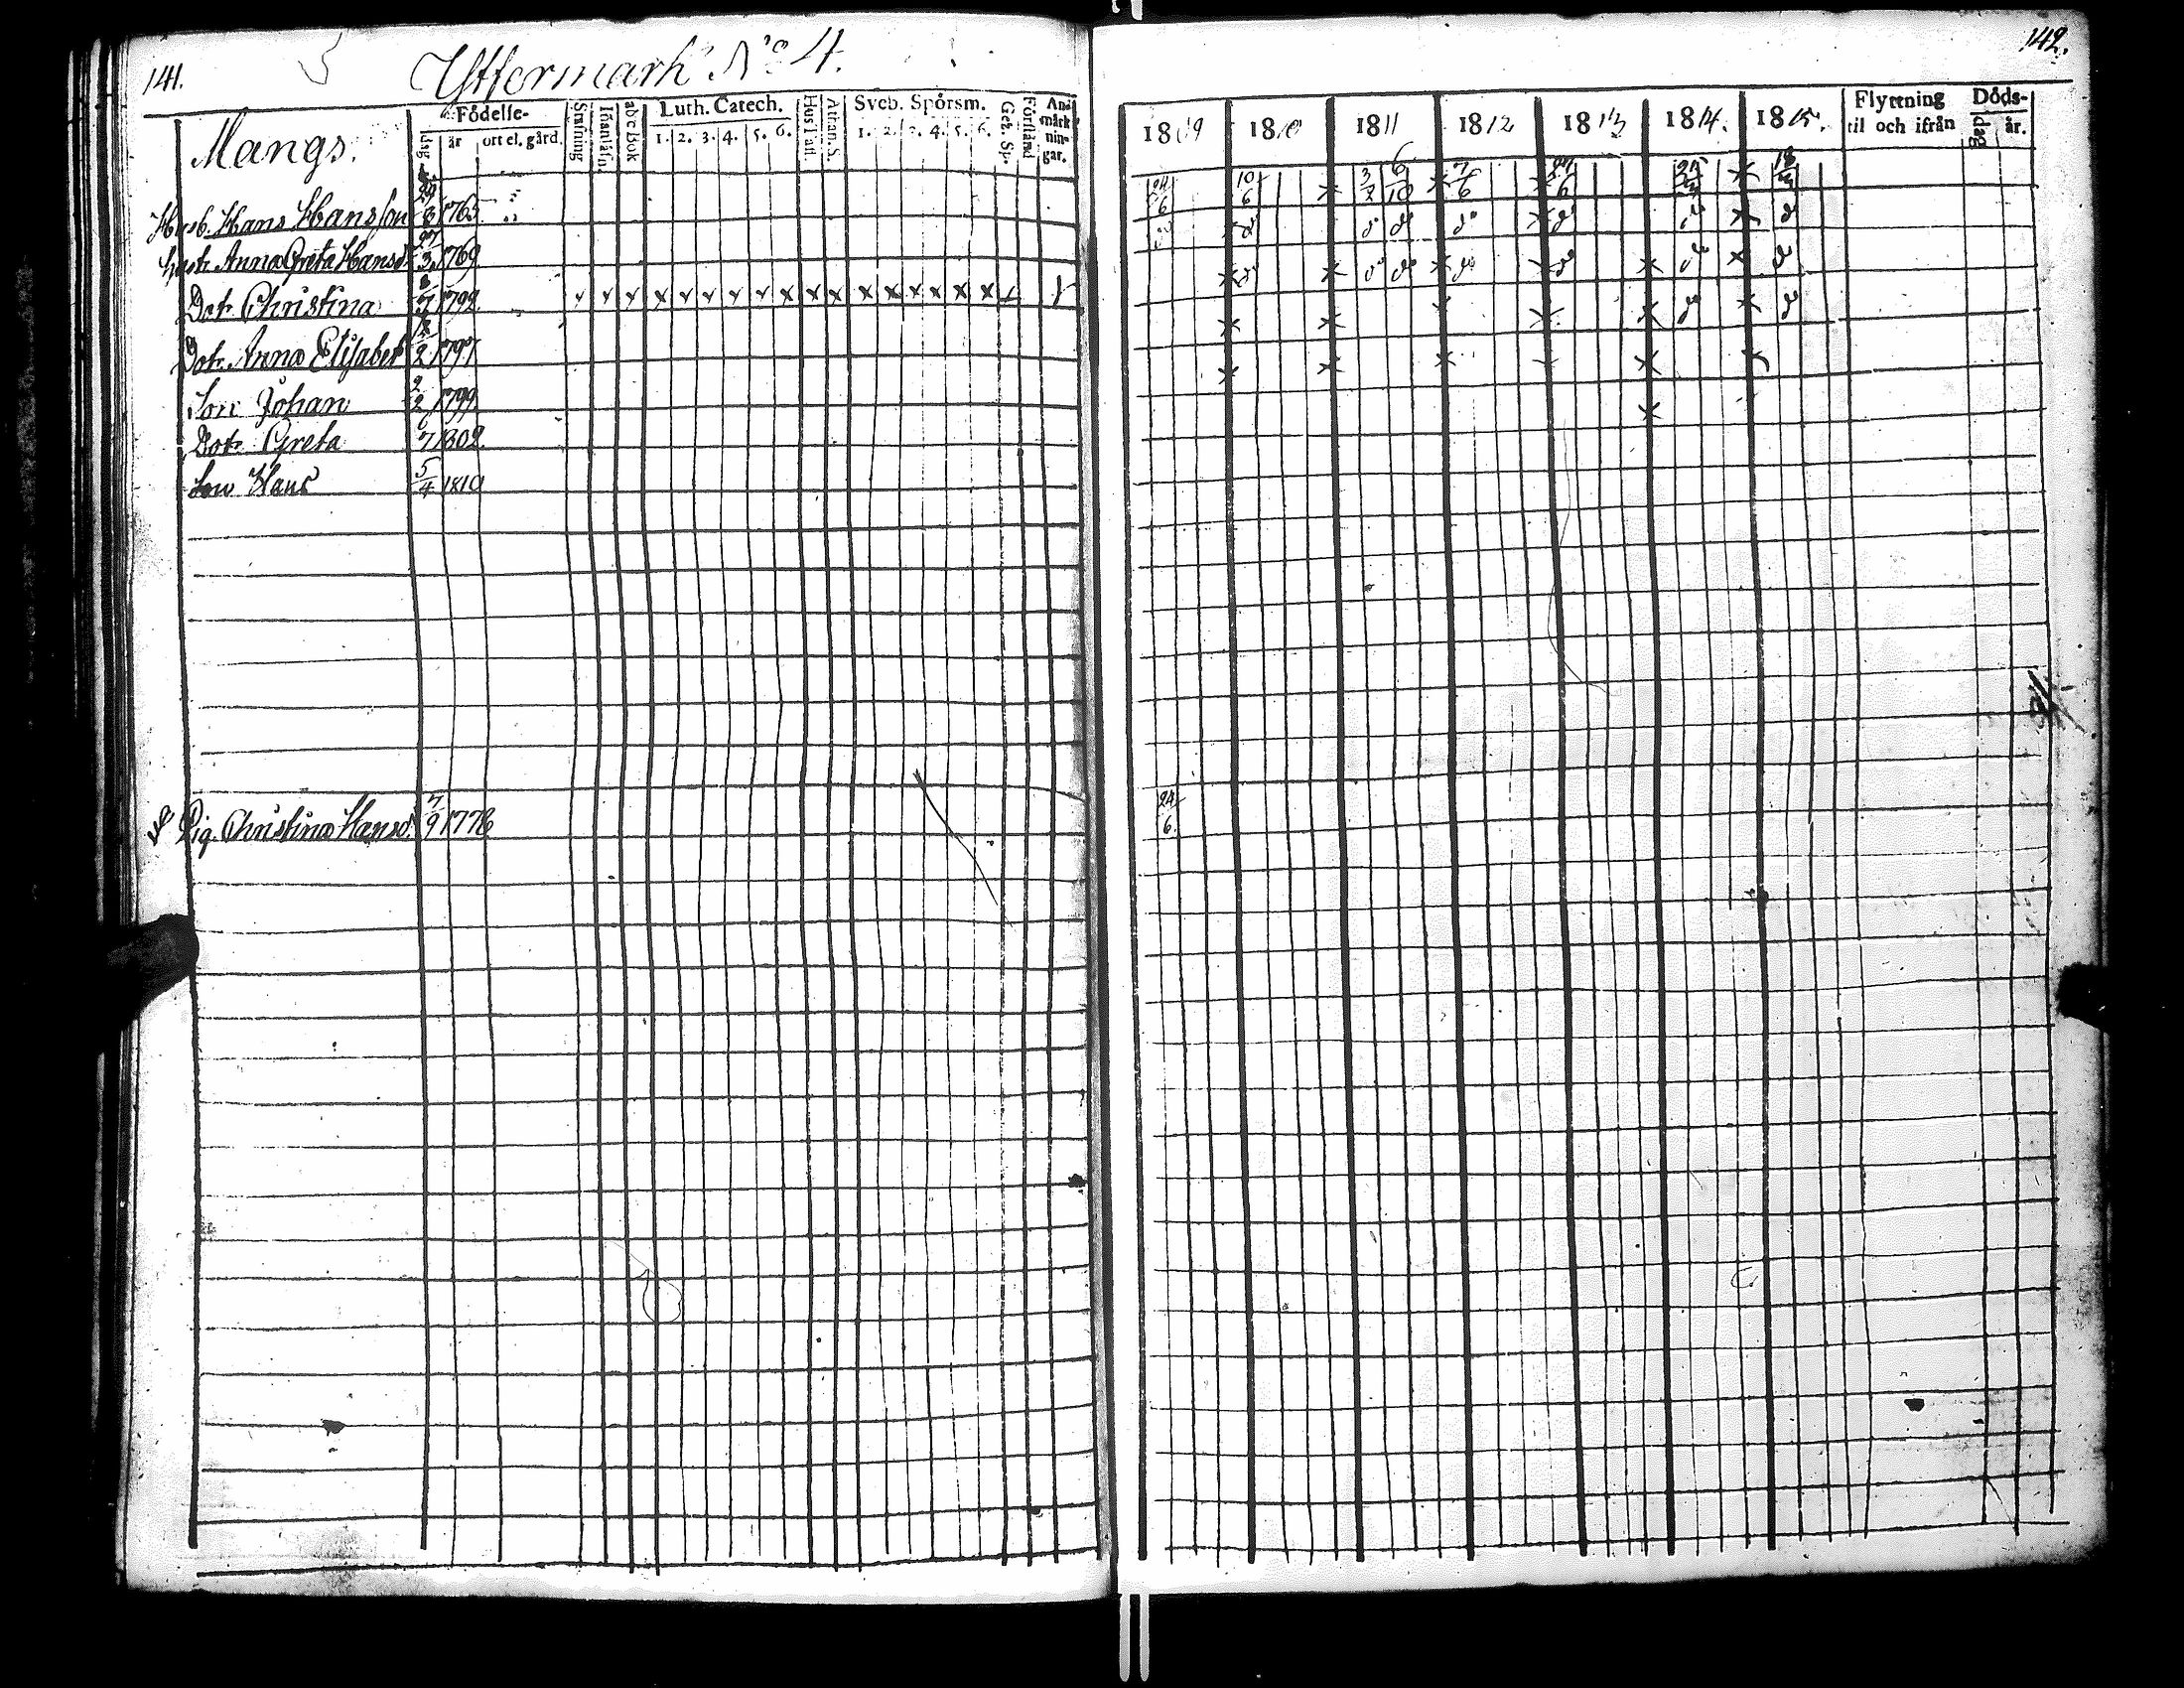 141.
Yttermark No 4.
142.
Mangs.
Födelse-
dag år ort el. gård.
Stafning
Innanläsn.
abc Bok
Luth. Catech.
1. 2. 3. 4. 5. 6.
Hus Tafl.
Athan. S.
Sveb. Spörsm.
1. 2. 3. 4. 5. 6.
Gez. Sp.
Förstånd
Anmärkningar.
1809 1810 1811 1812 1813 1814. 1815.
Flyttning
til och ifrån
Döds-
dag år.
Husb. Hans Hansson 29/8 1765
24/6 10/6 3/2 6/10 7/6 24/6
hustr. Anna Greta Hansdr 27/3 1769
Dotr Christina 8/7 1792
x x x x x x x x x x x x x x x x x x
Dotr. Anna Elisabet 12/2 1797
Son Johan 2/2 1799
Dotr Greta 6/7 1802
Son Hans 5/4 1810
Pig. Christina Hansd. 7/9 1778
24/6